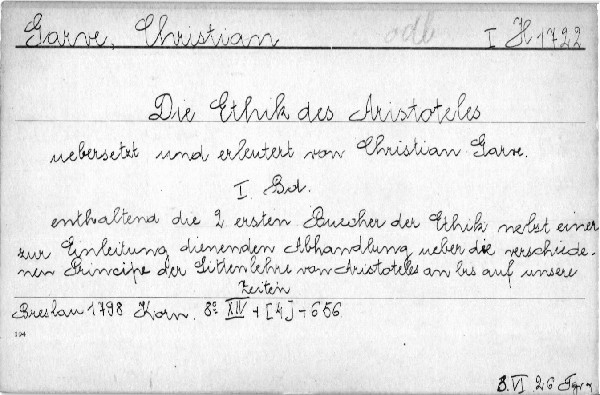 Garve, Christian odb I H 1722
Die Ethik des Aristoteles
uebersetzt und erleutert von Christian Garve.
I. Bd.
enthaltend die 2 ersten Buecher der Ethik nebst einer
zur Einleitung dienenden Abhandlung ueber die verschiede-
nen Principe der Sittenlehre von Aristoteles an bis auf unsere
Zeiten
Breslau 1798 Korn. 8º XIV + [4] - 656
3. VI 26